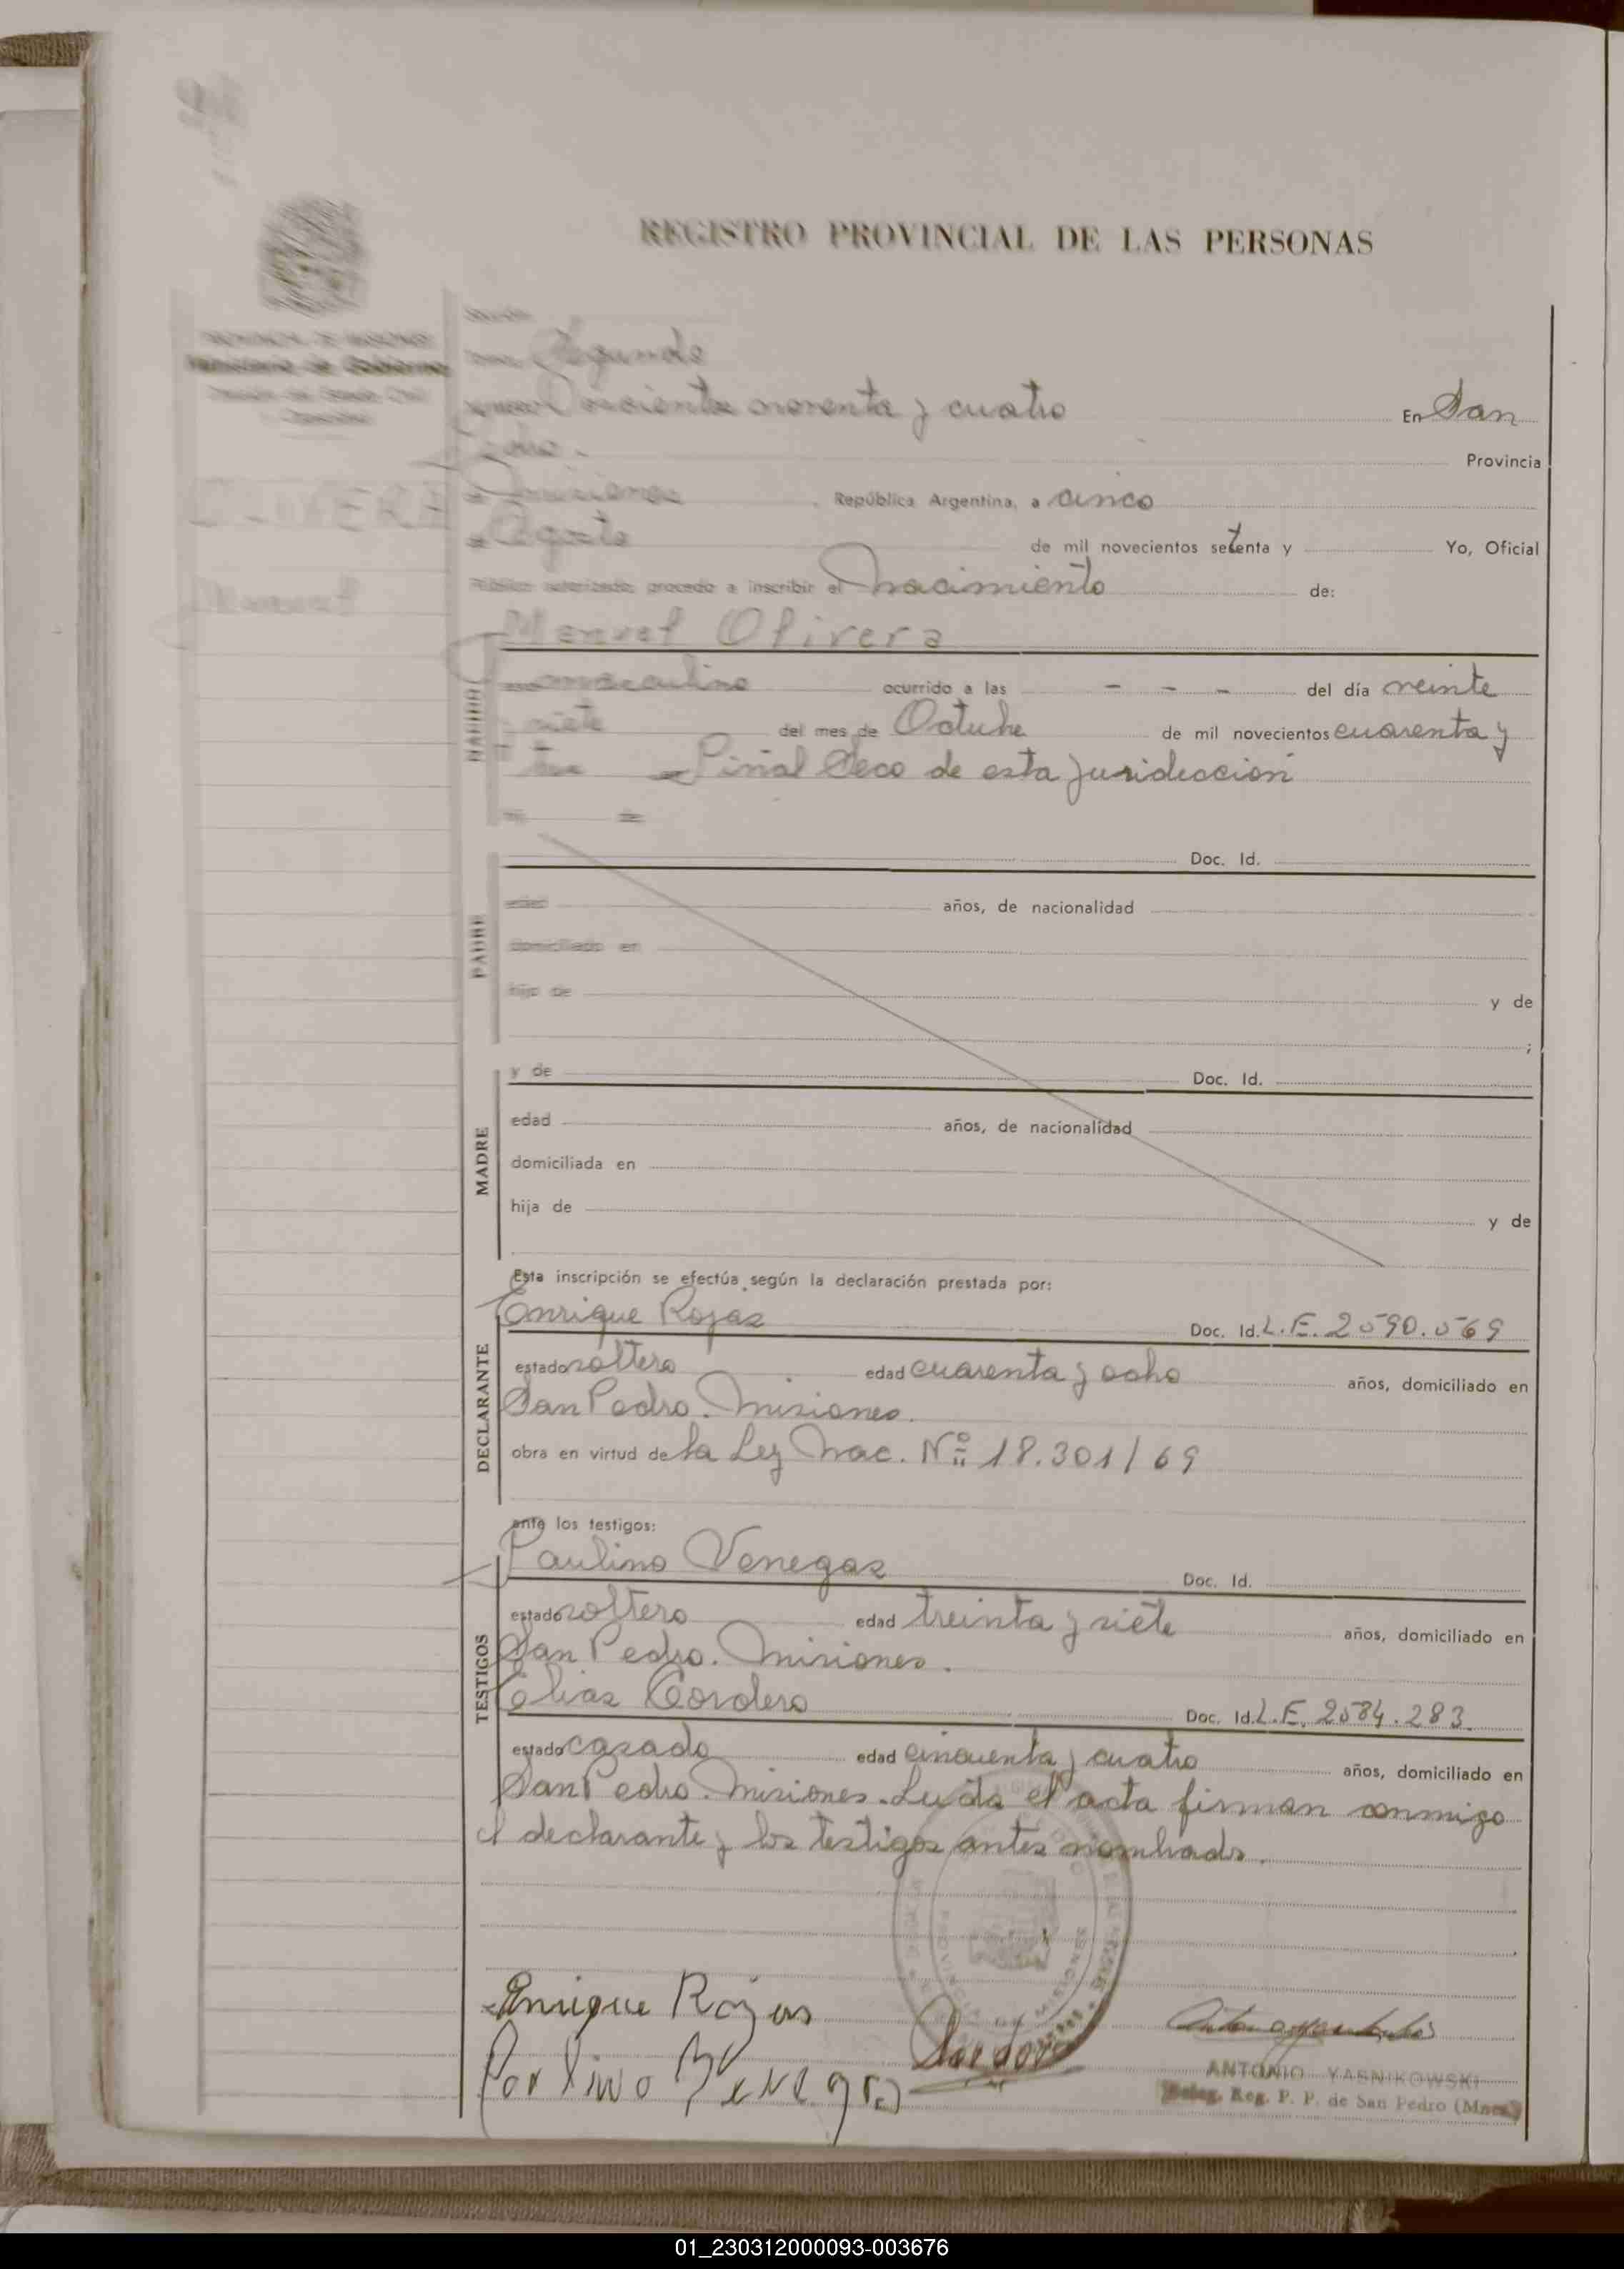 REGISTRO PROVINCIAL DE LAS PERSONAS
PROVINCIA DE MISIONES
Ministerio de Gobierno
OLIVERA
Manuel
Sección
Tomo Segundo
Número Doscientos noventa y cuatro En San
Pedro. Provincia
de Misiones, República Argentina, a cinco
de Agosto de mil novecientos setenta y Yo, Oficial
Público autorizado procedo a inscribir el Nacimiento de:
Manuel Olivera
sexo masculino ocurrido a las - - - del día veinte
siete del mes de Octubre de mil novecientos cuarenta y
Pinal Seco de esta jurideccion
hijo de
Doc. Id.
PADRE
edad años, de nacionalidad
domiciliado en
hijo de y de
;
y de Doc. Id.
MADRE
edad años, de nacionalidad
domiciliada en
hija de y de
Esta inscripción se efectúa según la declaración prestada por:
Enrique Rojas Doc. Id. L.E. 2590.569
DECLARANTE
estado soltero edad cuarenta y ocho años, domiciliado en
San Pedro. Misiones.
obra en virtud de la Ley Nac. Nº 18.301/69
ante los testigos:
Paulino Venegas Doc. Id.
TESTIGOS
estado soltero edad treinta y siete años, domiciliado en
San Pedro. Misiones.
Elias Cordero Doc. Id. L.E. 2584.283.
estado casado edad cincuenta y cuatro años, domiciliado en
San Pedro. Misiones. Leida el acta firman conmigo
el declarante y los testigos antes nombrado.
Enrique Rojas
ANTONIO YASNIKOWSKI
Deleg. Reg. P. P. de San Pedro (Mnes)
01_230312000093-003676